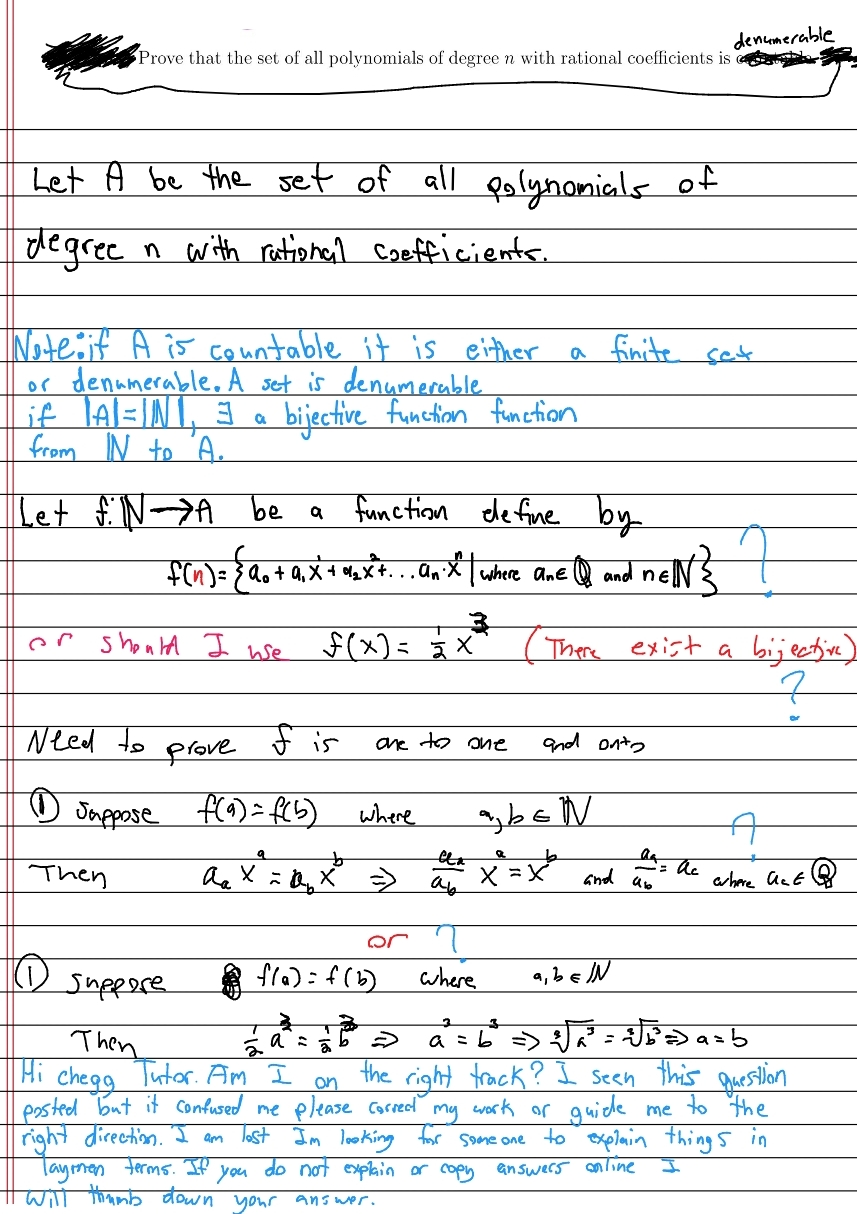 denumerable
Prove that the set of all polynomials of degree n with rational coefficients is
Let A be the set of all polynomials of
degree n with rational coefficients.
Note: if A is countable it is either a finite set
or denumerable. A set is denumerable
if |A|=|ℕ|, ∃ a bijective function function
from ℕ to A.
Let f: ℕ → A be a function define by
f(n) = {a₀ + a₁x¹ + a₂x² + ... aₙ·xⁿ | where aₙ ∈ ℚ and n ∈ ℕ} ?
or should I use f(x) = 1/2 x³ (There exist a bijective)
?
Need to prove f is one to one and onto
① Suppose f(a) = f(b) where a, b ∈ ℕ
?
Then aₐ xᵃ = a_b xᵇ ⇒ aₐ/a_b xᵃ = xᵇ and aₐ/a_b = a_c where a_c ∈ ℚ
or ?
① Suppose f(a) = f(b) where a, b ∈ ℕ
Then 1/2 a³ = 1/2 b³ ⇒ a³ = b³ ⇒ ∛a³ = ∛b³ ⇒ a = b
Hi chegg Tutor. Am I on the right track? I seen this question
posted but it confused me please correct my work or guide me to the
right direction. I am lost Im looking for someone to explain things in
laymen terms. If you do not explain or copy answers online I
will thumb down your answer.